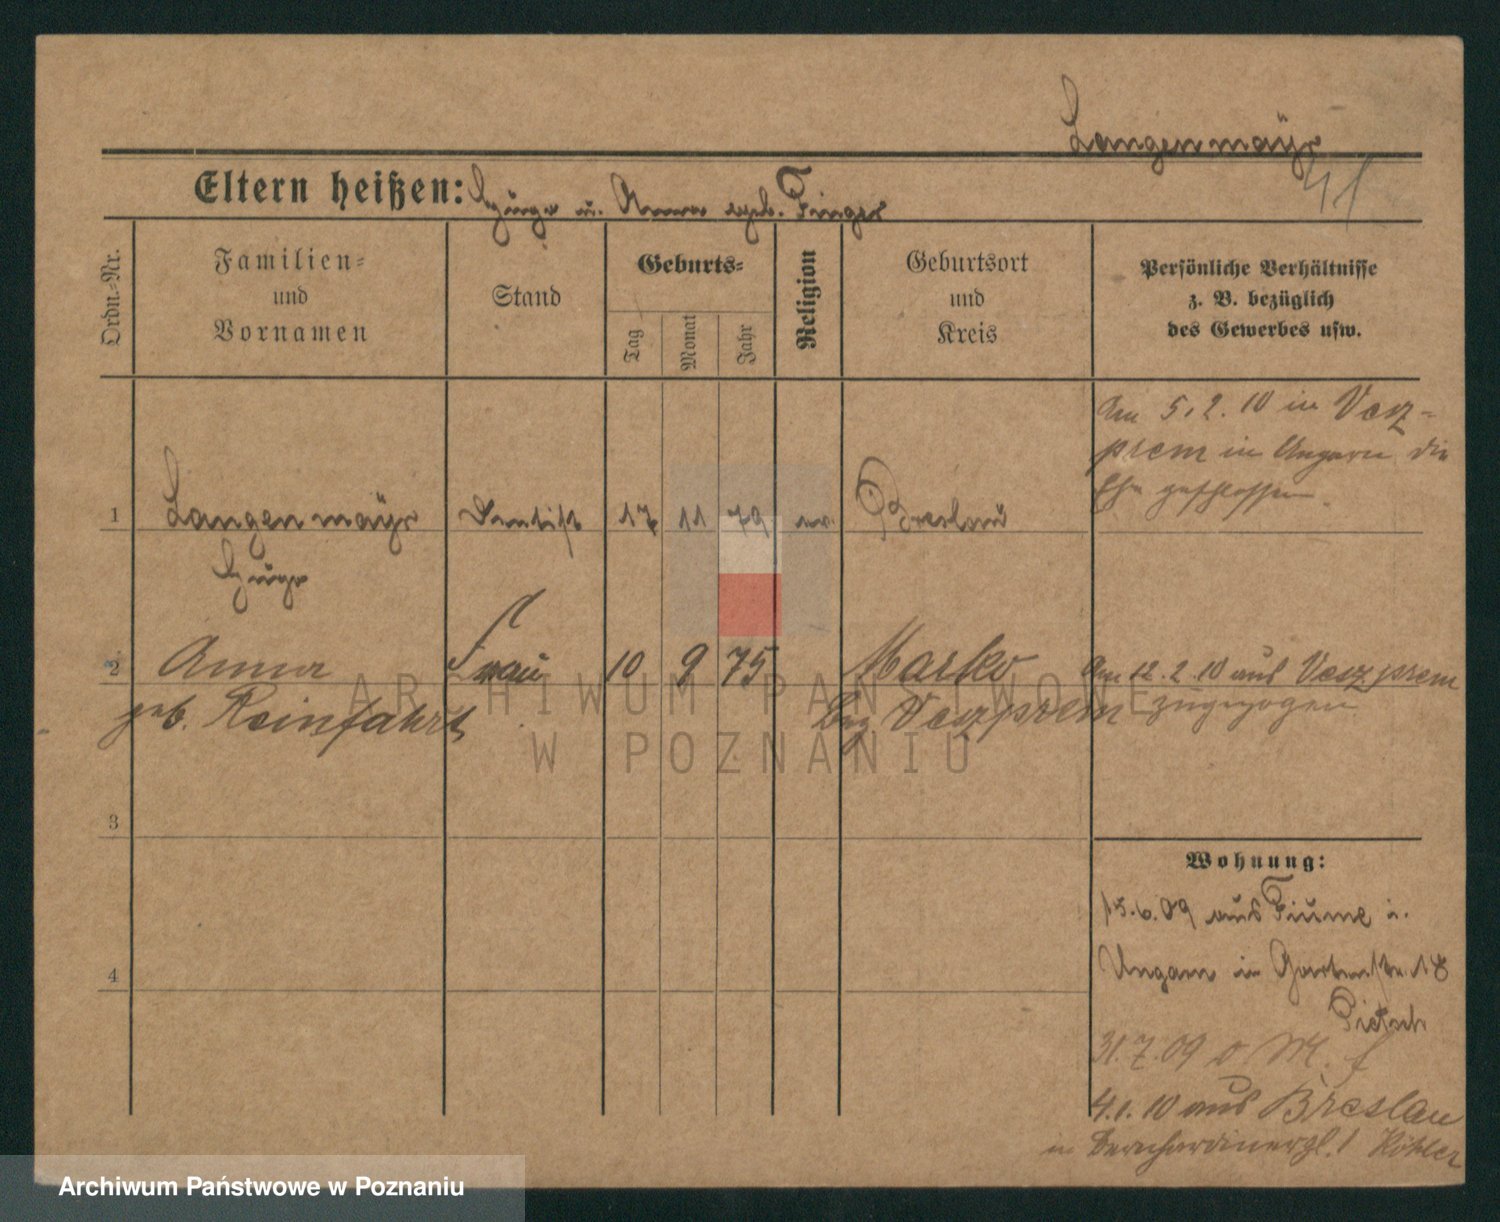 Langenmayr
Eltern heißen: Hugo u. Anna geb. Finger
Ordn.-Nr.
Familien-
und
Vornamen
Stand
Geburts-
Tag
Monat
Jahr
Religion
Geburtsort
und
Kreis
Persönliche Verhältnisse
z. B. bezüglich
des Gewerbes usw.
Am 5.2.10 in Vesz-
prem in Ungarn die
Ehe geschlossen.
1 Langenmayr Dentist 17 11 79 ev. Breslau
Hugo
2 Anna Frau 10 9 75 Marko Am 12.2.10 aus Veszprem
geb. Reinfahrt Bez Veszprem zugezogen
3
4
Wohnung:
15.6.09 aus Fiume i.
Ungarn in Gartenstr. 18
Pietsch
31.7.09 o M. f
4.1.10 aus Breslau
in Bernhardinerpl. 1 Köhler
ARCHIWUM PAŃSTWOWE
W POZNANIU
Archiwum Państwowe w Poznaniu